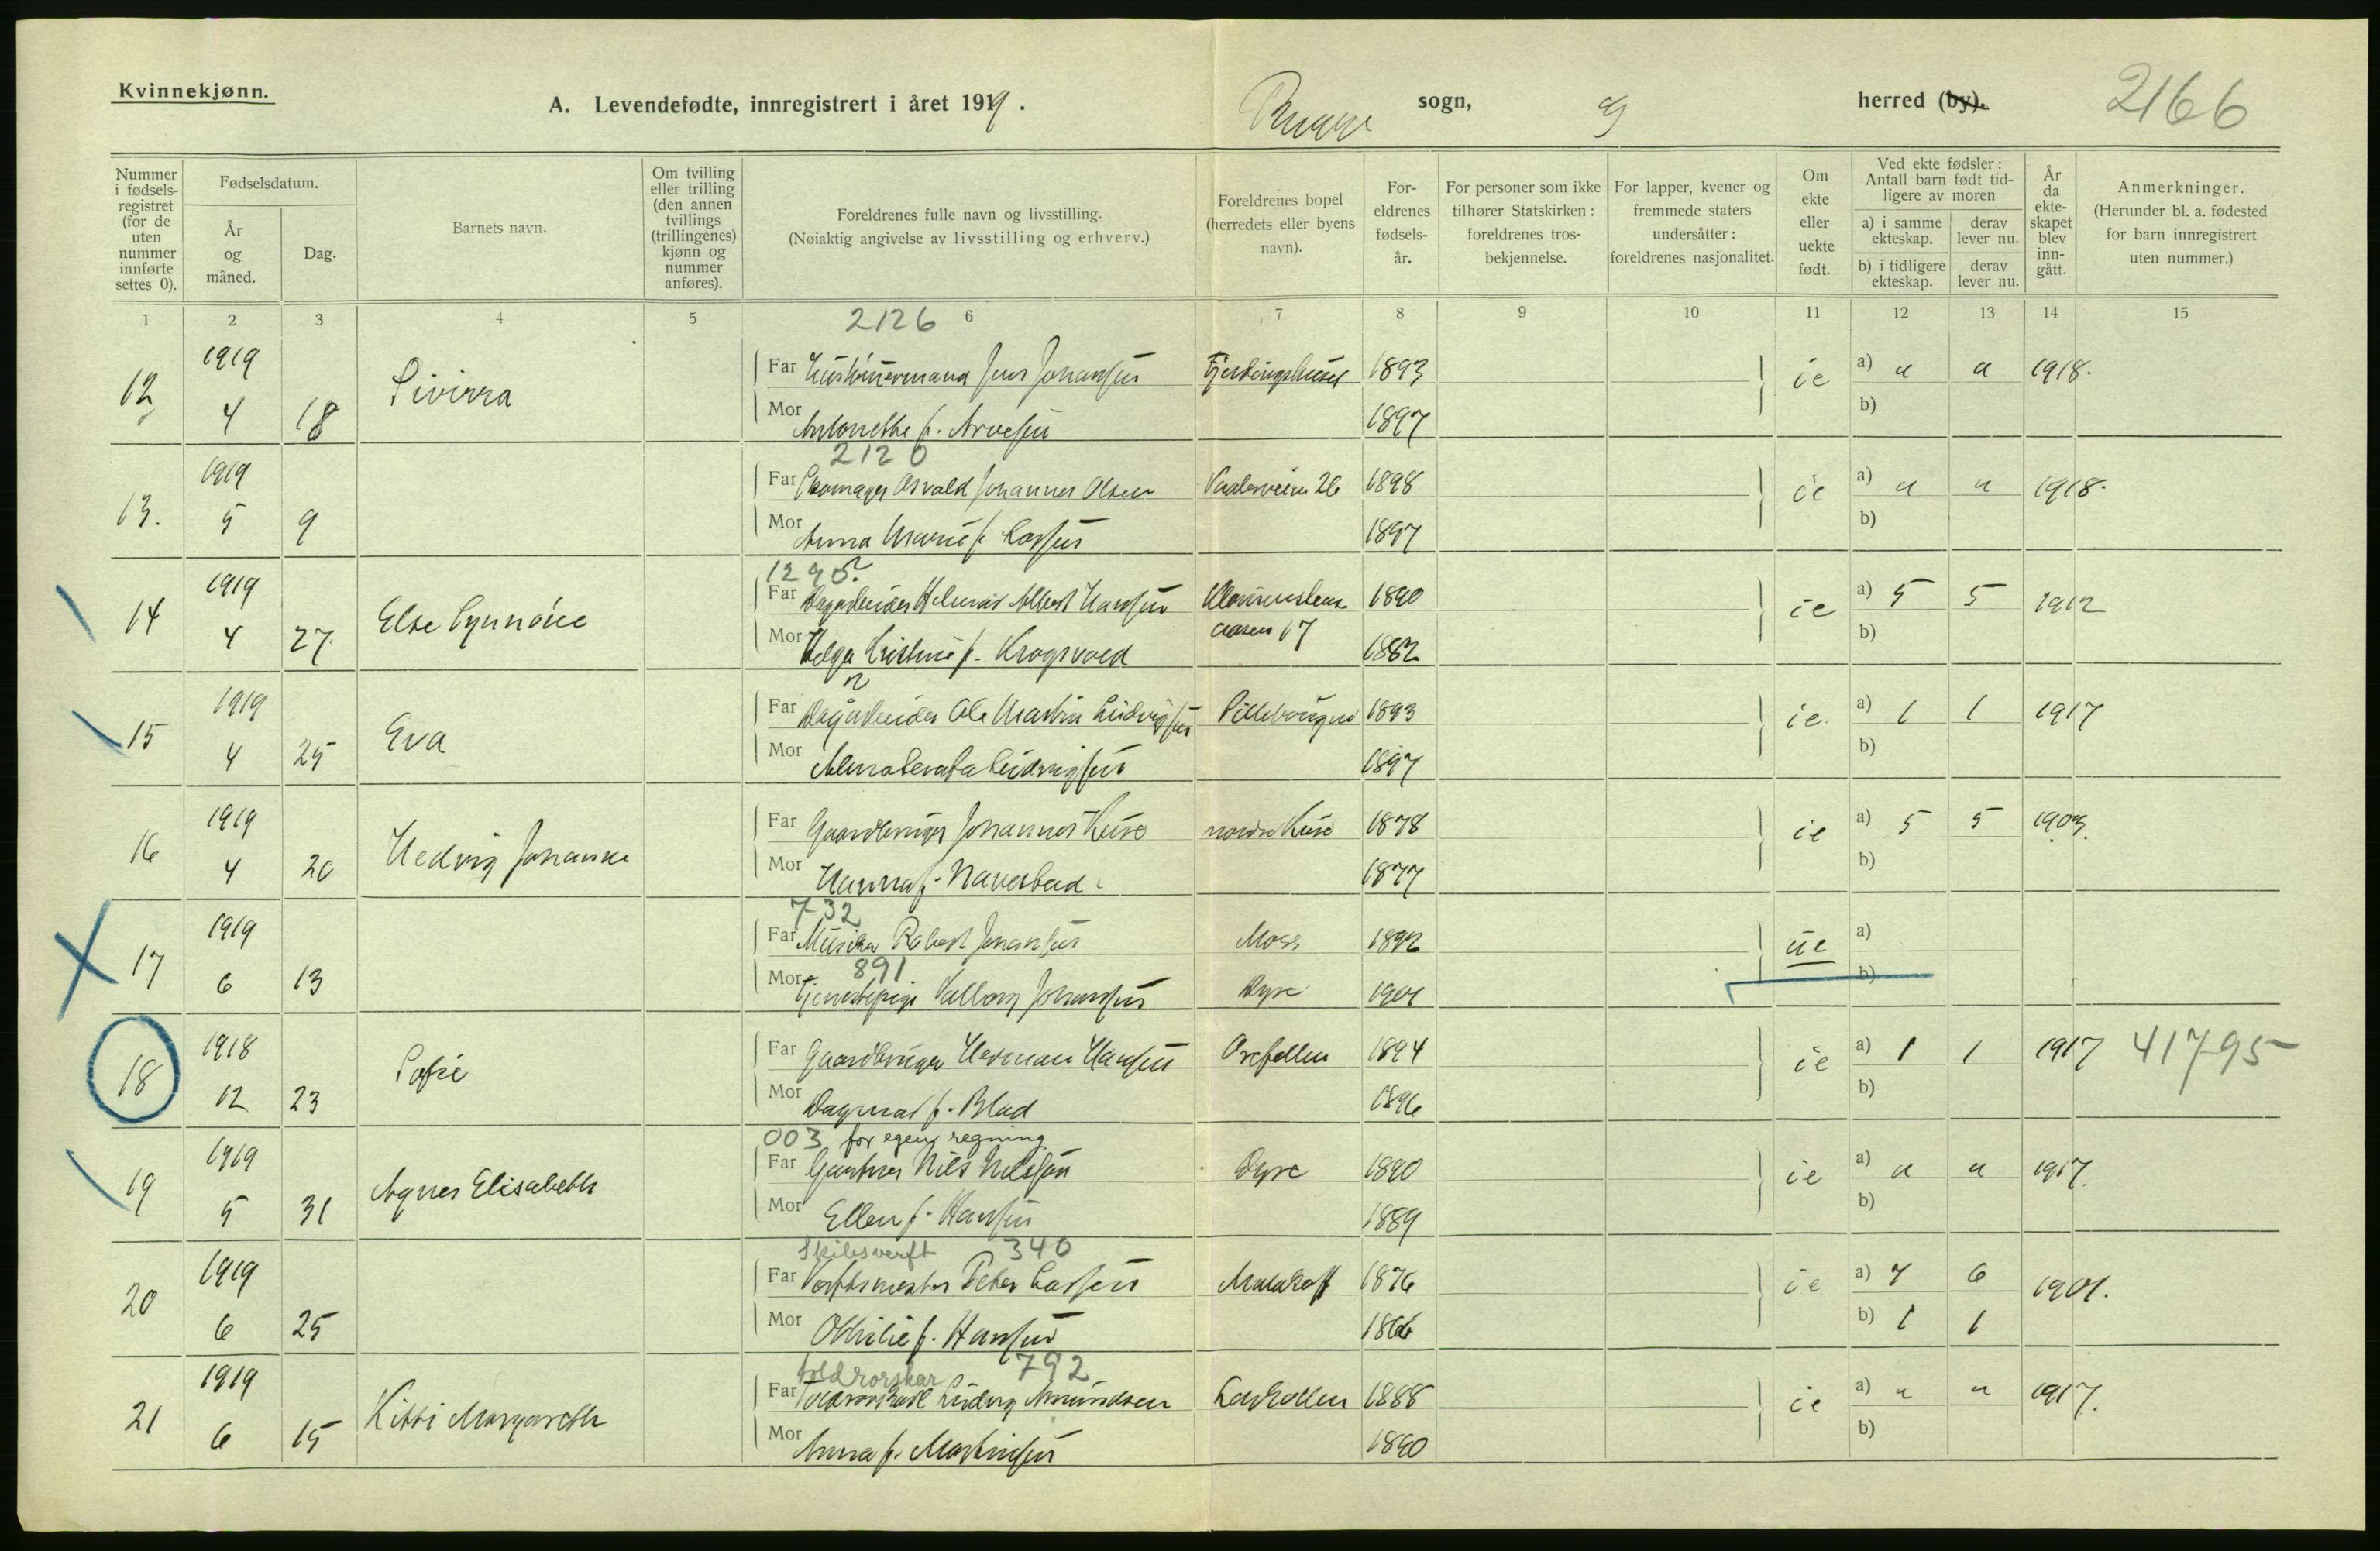 Kvinnekjønn.
A. Levendefødte, innregistrert i året 1919.
Rygge sogn, herred (by). 2166
Nummer i fødsels-registret (for de uten nummer innførte settes 0).
Fødselsdatum.
År og måned.
Dag.
Barnets navn.
Om tvilling eller trilling (den annen tvillings (trillingenes) kjønn og nummer anføres).
Foreldrenes fulle navn og livsstilling.
(Nøiaktig angivelse av livsstilling og erhverv.)
Foreldrenes bopel (herredets eller byens navn).
For-eldrenes fødsels-år.
For personer som ikke tilhører Statskirken: foreldrenes tros-bekjennelse.
For lapper, kvener og fremmede staters undersåtter: foreldrenes nasjonalitet.
Om ekte eller uekte født.
Ved ekte fødsler: Antall barn født tid-ligere av moren
a) i samme ekteskap.
derav lever nu.
b) i tidligere ekteskap.
derav lever nu.
År da ekte-skapet blev inn-gått.
Anmerkninger.
(Herunder bl. a. fødested for barn innregistrert uten nummer.)
1 2 3 4 5 6 7 8 9 10 11 12 13 14 15
2126
12 1919 4 18
Far Jens Johansen 1893 ie a) u u 1918.
Mor Antonethe f. Arvesen 1897 b)
2120
13. 1919 5 9
Far Skomager Osvald Johannes Olsen Vaalerveien 26 1898 ie a) u u 1918.
Mor Anna Marie f. Larsen 1897 b)
1290?
14 1919 4 27 Else Synnøve
Far Dagarbeider Albert Hansen 17 1890 ie a) 5 5 1912
Mor Helga Kristine f. Krogsvold 1882 b)
15 1919 4 25 Eva
Far Dagarbeider Ole Martin Ludvigsen 1893 ie. a) 1 1 1917
Mor Ludvigsen 1897 b)
16 1919 4 20 Hedvig Johanne
Far Gaardbruger Johannes Huse nordre Huse 1878 ie a) 5 5 1903.
Mor Hanna f. Navestad 1877 b)
732
17 1919 6 13
Far Musiker Robert Johansen Moss 1892 ue a)
891
Mor Tjenestepige Valborg Johansen Dyre 1901 b)
18 1918 12 23 Sofie
Far Gaardbruger Herman Hansen 1894 ie a) 1 1 1917 41795
Mor Dagmar f. Blad 1896 b)
003 for egen regning
19 1919 5 31 Agnes Elisabeth
Far Gartner Nils Nilsson Dyre 1890 ie a) u u 1917.
Mor Ellen f. Hansen 1889 b)
Skibsverft 340
20 1919 6 25
Far Verftsmester Peter Larsen Malakoff 1876 ie a) 7 6 1901.
Mor Othilie f. Hansen 1866 b) 1 1
toldrorskar 792
21 1919 6 15 Kitti Margareth
Far Toldrorskarl Ludvig Amundsen Larkollen 1888 ie a) u u 1917.
Mor Anna f. Martinsen 1890 b)